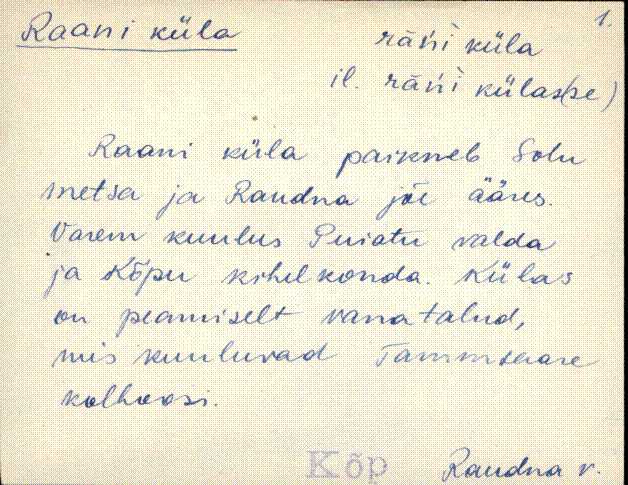 1.
Raani küla
rāńì küla
il. rāńì külas(se)
Raani küla paikneb Solu
metsa ja Raudna jõe ääres.
Varem kuulus Puiatu valda
ja Kõpu kihelkonda. Külas
on peamiselt vanatalud,
mis kuuluvad Tammsaare
kolhoosi.
Kõp
Raudna v.